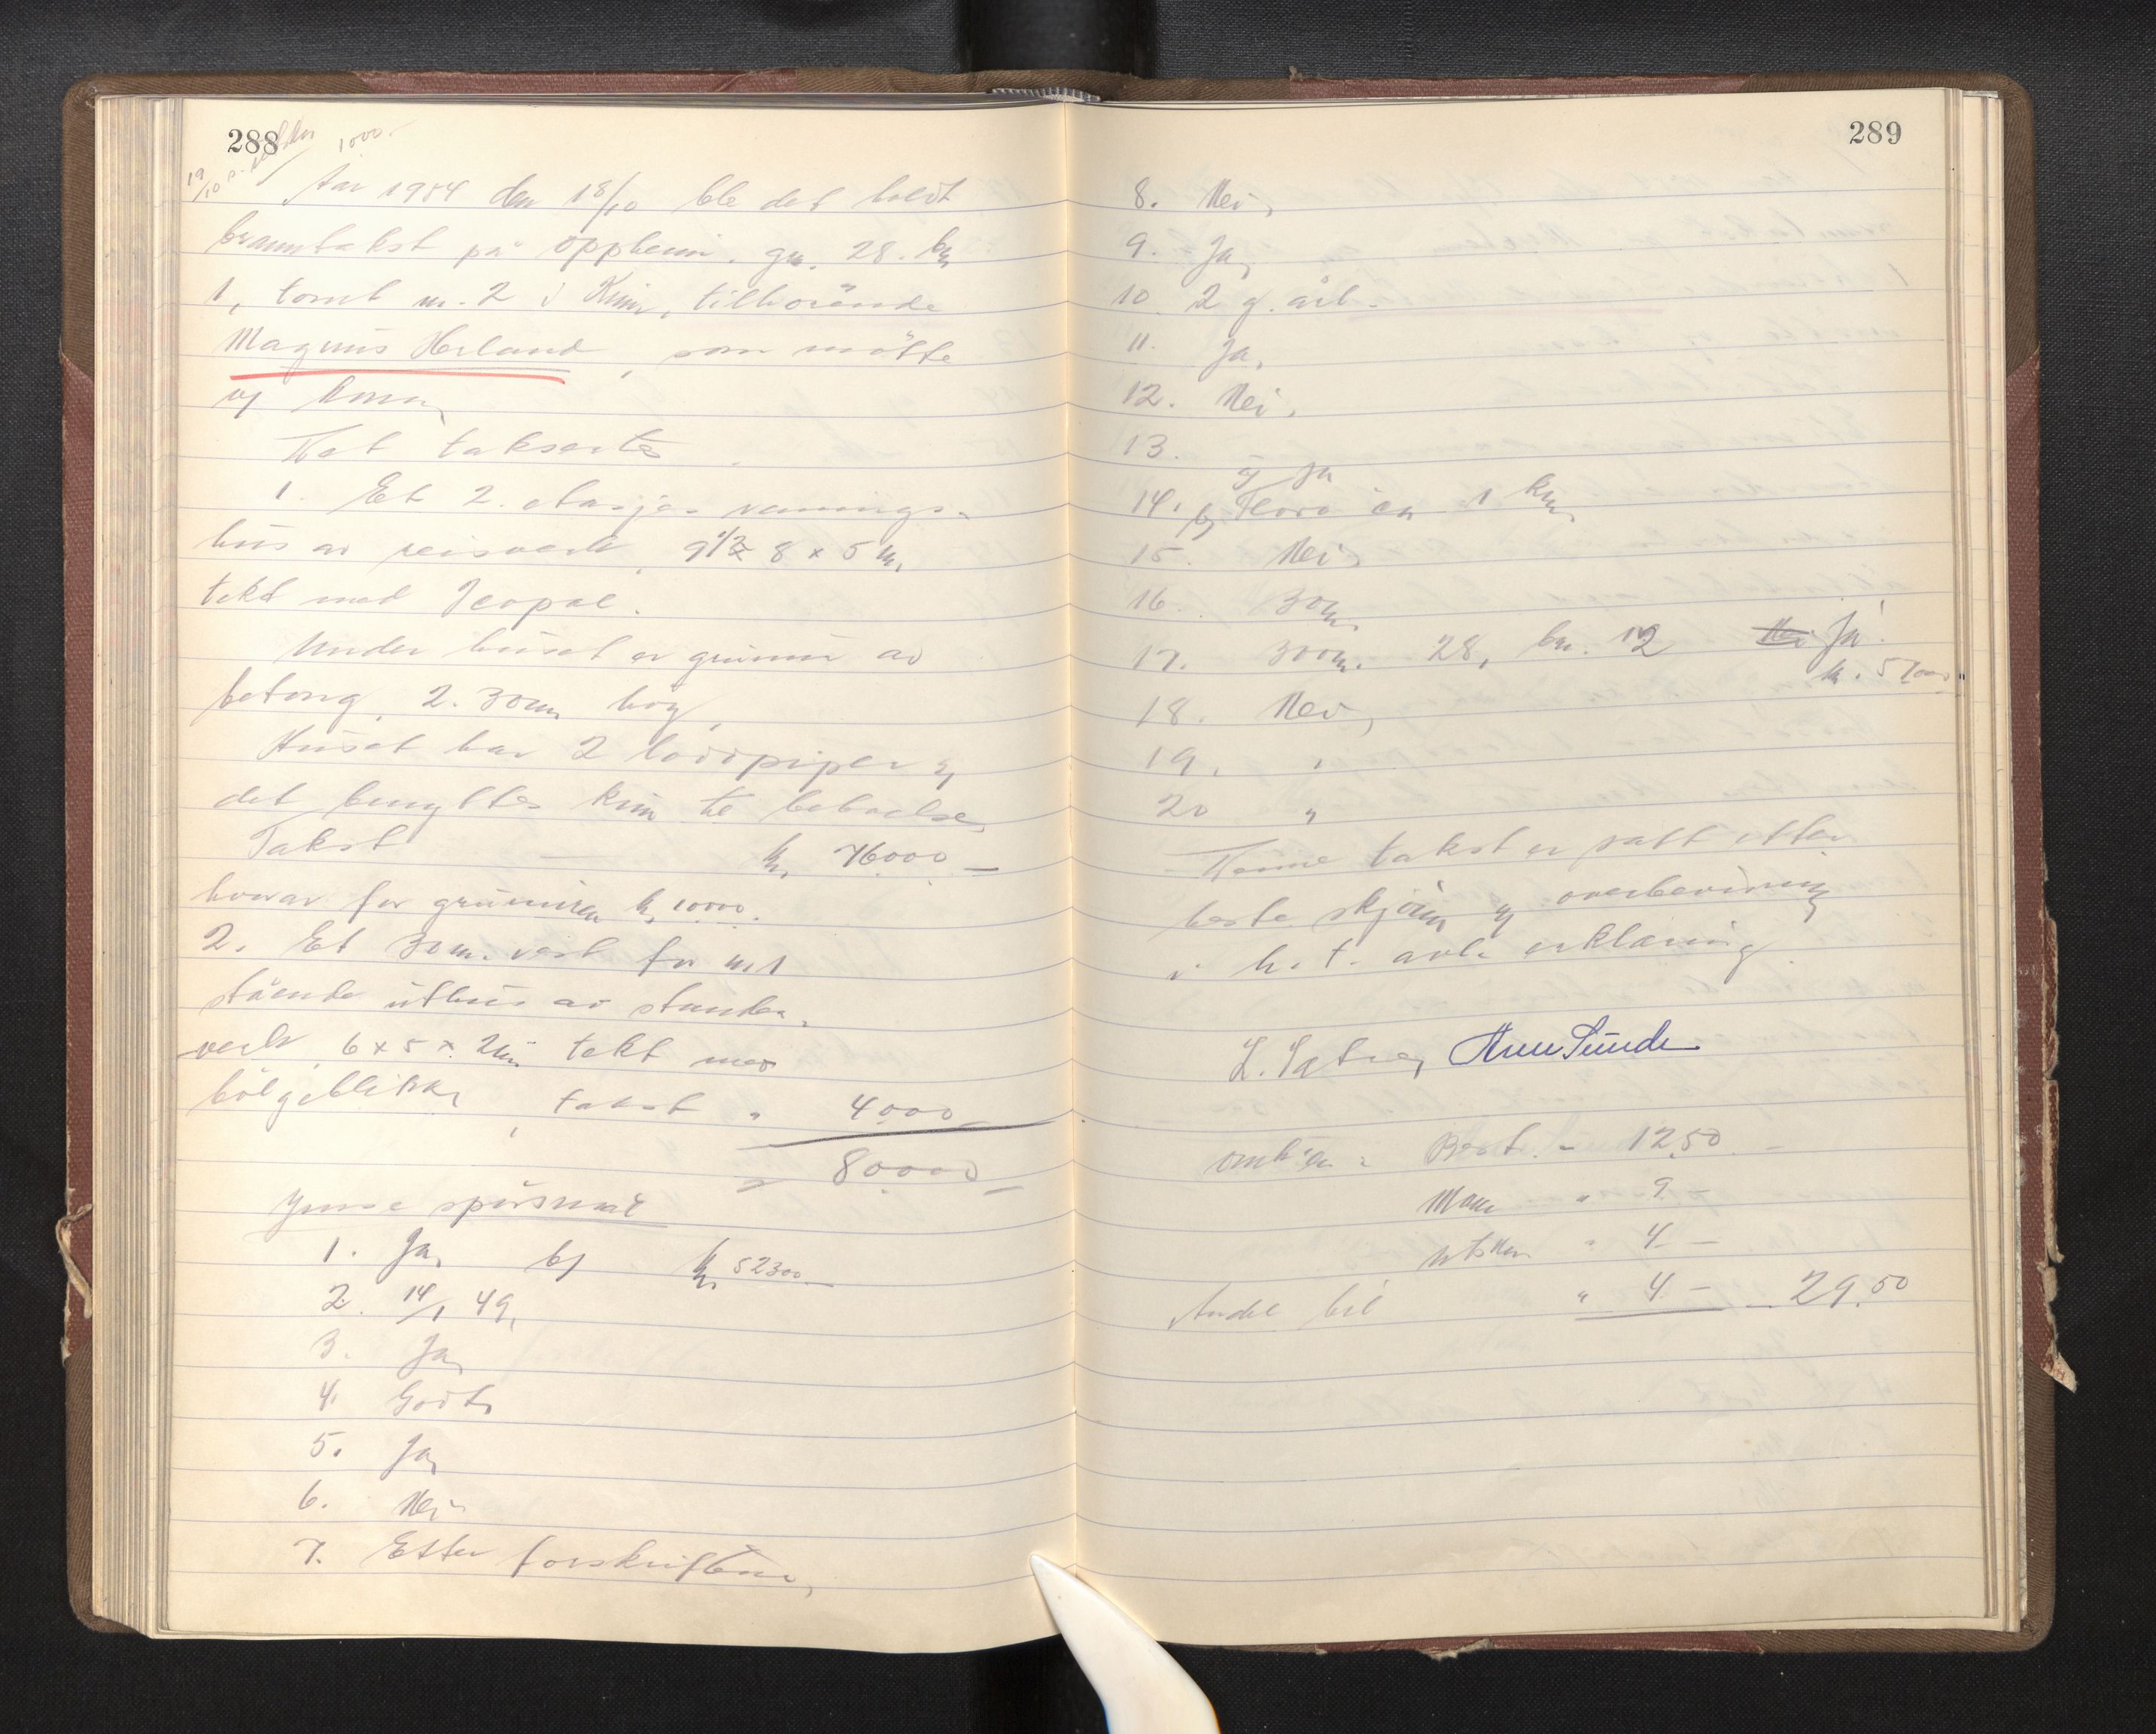 288
1000-
19/10
År 1954 den 18/10 ble det holdt
branntakst på Oppheim. gn. 28. bn
1, tomt nr. 2 i Kinn, tilhørende
Magnus Herland, som møtte
og kona,
Det takserte
1. Et 2. etasjes vånings-
hus av reisverk, 9 1/2 x 8 x 5 m,
tekt med Icopal.
Under huset er grunnmur av
betong, 2.30 m høg,
Huset har 2 loddpiper og
det benyttes kun til beboelse,
Takst kr, 76000.—
hvorav for grunnmuren kr, 10000.
2. Et 30 m. vest for nr 1
stående uthus av stender-
verk, 6 x 5 x 2 m tekt med
bølgeblikk, takst " 4000-
80000-
Ymse spørsmål
1. Ja, b) kr, 52300.—
2. 14/1 49,
3. Ja,
4. Godt,
5. Ja,
6. Nei
7. Etter forskriftene,
289
8. Nei,
9. Ja,
10. 2 g. årl.
11. Ja,
12. Nei,
13.
a) Ja
14. b) Florø ca 1 km,
15. Nei
16. 30 m,
17. 300 m. 28, bn. 12 Nei Ja!
kr. 57000
18. Nei,
19. "
20 "
Denne takst er satt etter
beste skjønn og overbevisning
i h. t. avl. erklæring.
L. Sætre, Arne Sunde
Omk'er: Best. - 12,50 -
Mann " 9 -
" 4 -
Andel bil " 4 - - 29.50